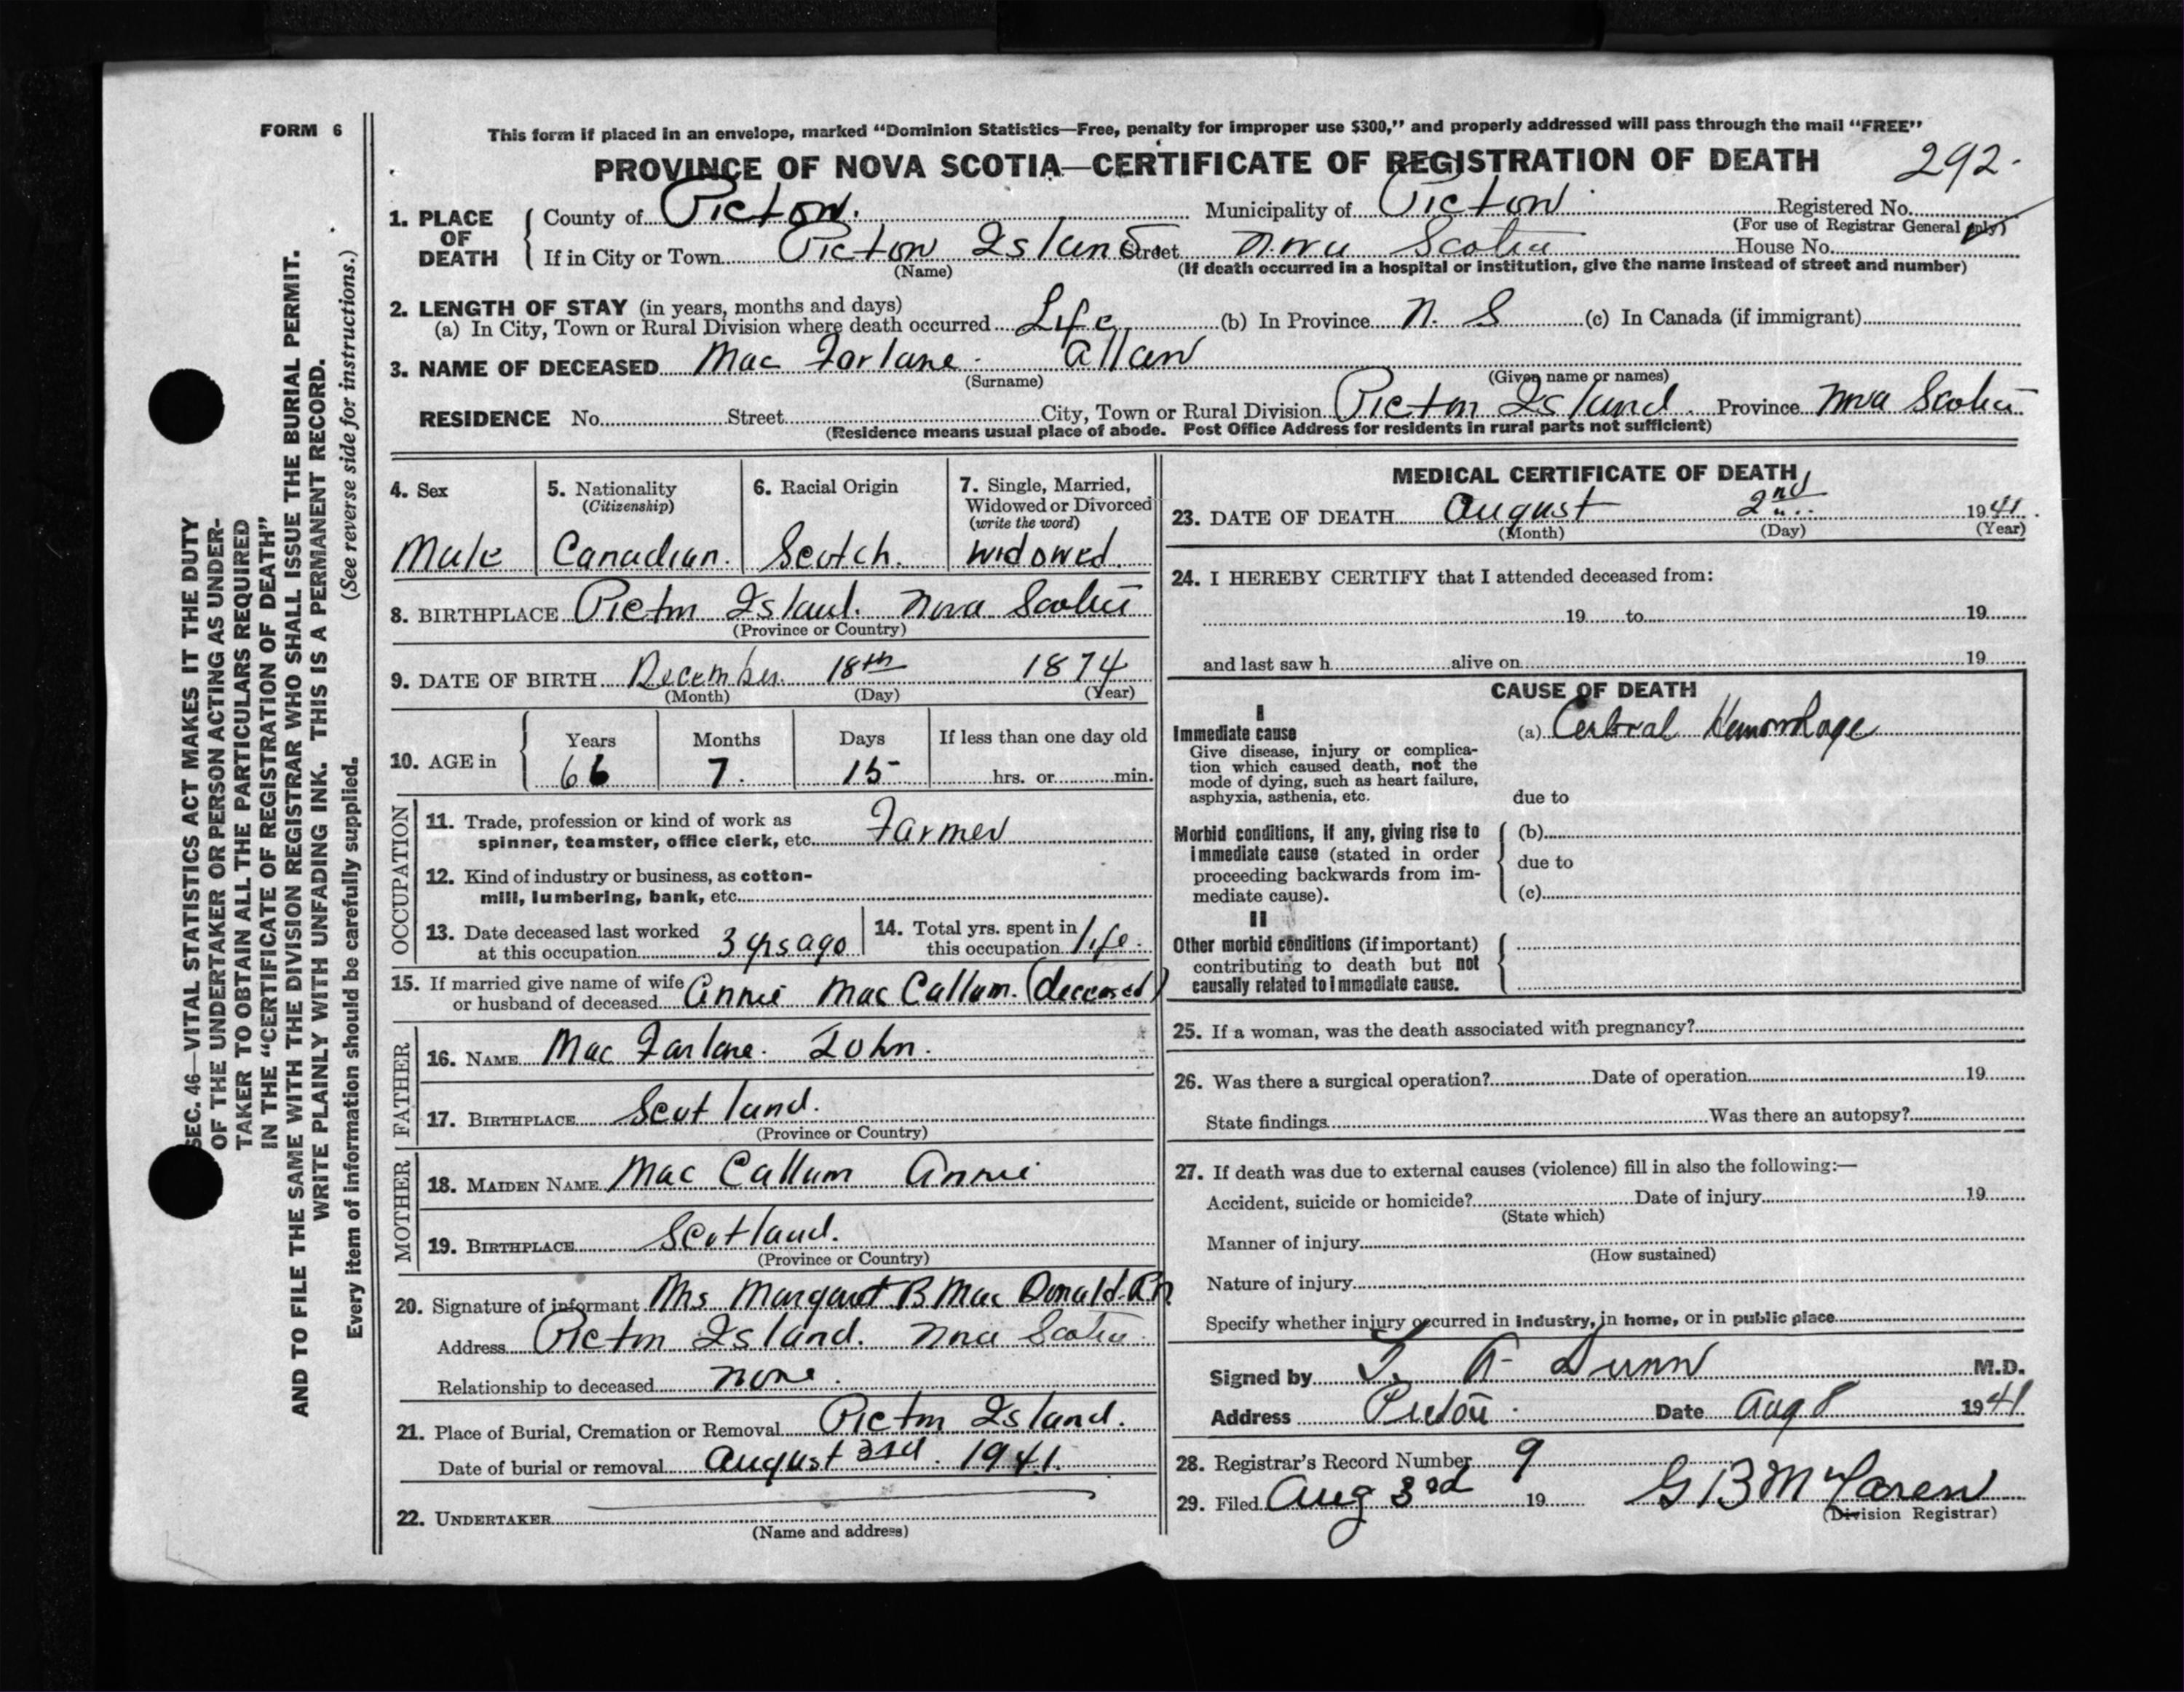 FORM 6
This form if placed in an envelope, marked "Dominion Statistics—Free, penalty for improper use $300," and properly addressed will pass through the mail "FREE"
PROVINCE OF NOVA SCOTIA—CERTIFICATE OF REGISTRATION OF DEATH 292.
1. PLACE OF DEATH County of Picton. Municipality of Picton Registered No.
(For use of Registrar General only)
If in City or Town Picton Island Street Nova Scotia House No.
(Name) (If death occurred in a hospital or institution, give the name instead of street and number)
2. LENGTH OF STAY (in years, months and days)
(a) In City, Town or Rural Division where death occurred Life (b) In Province N. S (c) In Canada (if immigrant)
3. NAME OF DECEASED Mac Farlane. Allan
(Surname) (Given name or names)
RESIDENCE No. Street City, Town or Rural Division Picton Island. Province Nova Scotia
(Residence means usual place of abode. Post Office Address for residents in rural parts not sufficient)
4. Sex
Male
5. Nationality
(Citizenship)
Canadian.
6. Racial Origin
Scotch.
7. Single, Married,
Widowed or Divorced
(write the word)
Widowed.
8. BIRTHPLACE Picton Island. Nova Scotia
(Province or Country)
9. DATE OF BIRTH December 18th 1874
(Month) (Day) (Year)
10. AGE in Years Months Days If less than one day old
66 7. 15 hrs. or min.
OCCUPATION
11. Trade, profession or kind of work as
spinner, teamster, office clerk, etc. Farmer
12. Kind of industry or business, as cotton-
mill, lumbering, bank, etc.
13. Date deceased last worked
at this occupation 3 yrs ago
14. Total yrs. spent in
this occupation life.
15. If married give name of wife
or husband of deceased Annie Mac Callum. (deceased)
FATHER
16. NAME Mac Farlane. John.
17. BIRTHPLACE Scotland.
(Province or Country)
MOTHER
18. MAIDEN NAME Mac Callum Annie
19. BIRTHPLACE Scotland.
(Province or Country)
20. Signature of informant Mrs Margaret B Mac Donald. RN
Address Picton Island. Nova Scotia.
Relationship to deceased none.
21. Place of Burial, Cremation or Removal Picton Island.
Date of burial or removal August 3rd. 1941.
22. UNDERTAKER
(Name and address)
MEDICAL CERTIFICATE OF DEATH
23. DATE OF DEATH August 2nd 1941.
(Month) (Day) (Year)
24. I HEREBY CERTIFY that I attended deceased from:
19 to 19
and last saw h alive on 19
CAUSE OF DEATH
I
Immediate cause (a) Cerbral Hemorrhage
Give disease, injury or complica-
tion which caused death, not the
mode of dying, such as heart failure,
asphyxia, asthenia, etc. due to
Morbid conditions, if any, giving rise to (b)
immediate cause (stated in order
proceeding backwards from im- due to
mediate cause). (c)
II
Other morbid conditions (if important)
contributing to death but not
causally related to immediate cause.
25. If a woman, was the death associated with pregnancy?
26. Was there a surgical operation? Date of operation 19
State findings Was there an autopsy?
27. If death was due to external causes (violence) fill in also the following:—
Accident, suicide or homicide? Date of injury 19
(State which)
Manner of injury
(How sustained)
Nature of injury
Specify whether injury occurred in industry, in home, or in public place
Signed by T. A Dunn M.D.
Address Pictou. Date Aug 8 1941
28. Registrar's Record Number 9
29. Filed Aug 3rd 19 G B McLaren
(Division Registrar)
SEC. 46—VITAL STATISTICS ACT MAKES IT THE DUTY
OF THE UNDERTAKER OR PERSON ACTING AS UNDER-
TAKER TO OBTAIN ALL THE PARTICULARS REQUIRED
IN THE "CERTIFICATE OF REGISTRATION OF DEATH"
AND TO FILE THE SAME WITH THE DIVISION REGISTRAR WHO SHALL ISSUE THE BURIAL PERMIT.
WRITE PLAINLY WITH UNFADING INK. THIS IS A PERMANENT RECORD.
Every item of information should be carefully supplied. (See reverse side for instructions.)